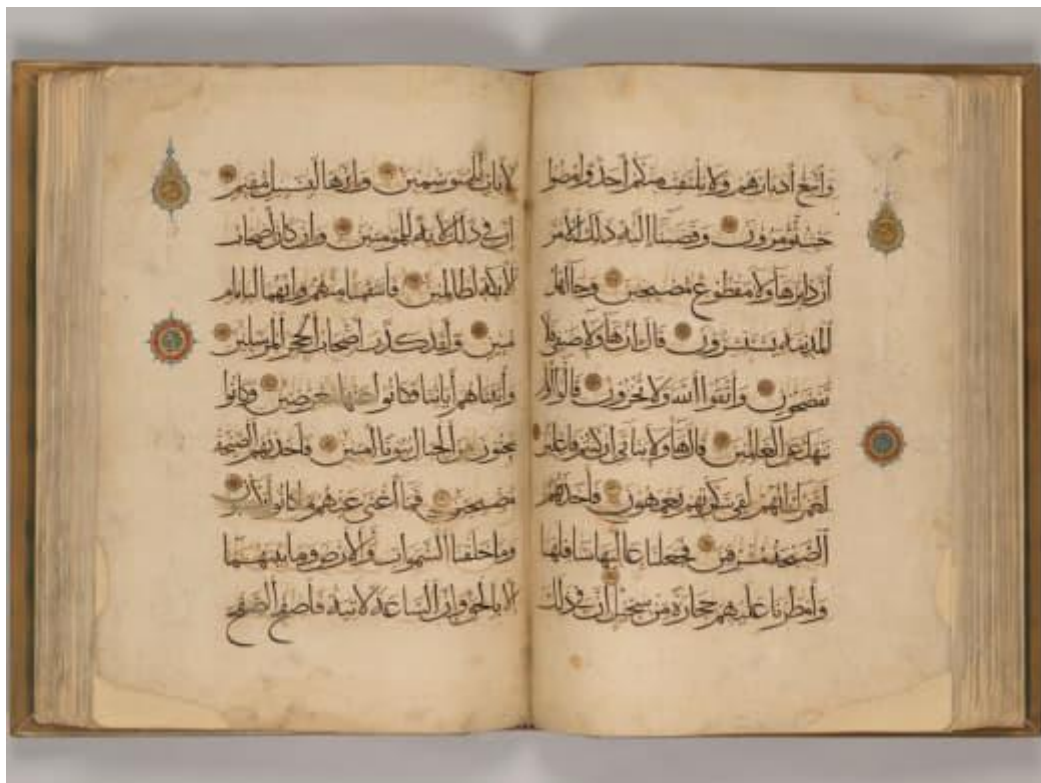 واتبع أدبارهم ولا يلتفت منكم أحد وامضوا
حيث تؤمرون وقضينا إليه ذلك الأمر
أن دابر هاولا مقطوع مصبحين وجا أهل
المدينة يستبشرون قال إن هاولا ضيفي فلا
تفضحون واتقوا الله ولا تخزون قالوا أولم
ننهك عن العالمين قال هاولا بناتي إن كنتم فاعلين
لعمرك إنهم لفي سكرتهم يعمهون فأخذتهم
الصيحة مشرقين فجعلنا عاليها سافلها
وأمطرنا عليهم حجارة من سجيل إن في ذلك
لآيات للمتوسمين وإنها لبسبيل مقيم
إن في ذلك لآية للمومنين وإن كان أصحاب
الأيكة لظالمين فانتقمنا منهم وإنهما لبإمام
مبين ولقد كذب أصحاب الحجر المرسلين
وآتيناهم آياتنا فكانوا عنها معرضين وكانوا
ينحتون من الجبال بيوتا آمنين فأخذتهم الصيحة
مصبحين فما أغنى عنهم ما كانوا يكسبون
وما خلقنا السموات والأرض وما بينهما
إلا بالحق وإن الساعة لآتية فاصفح الصفح